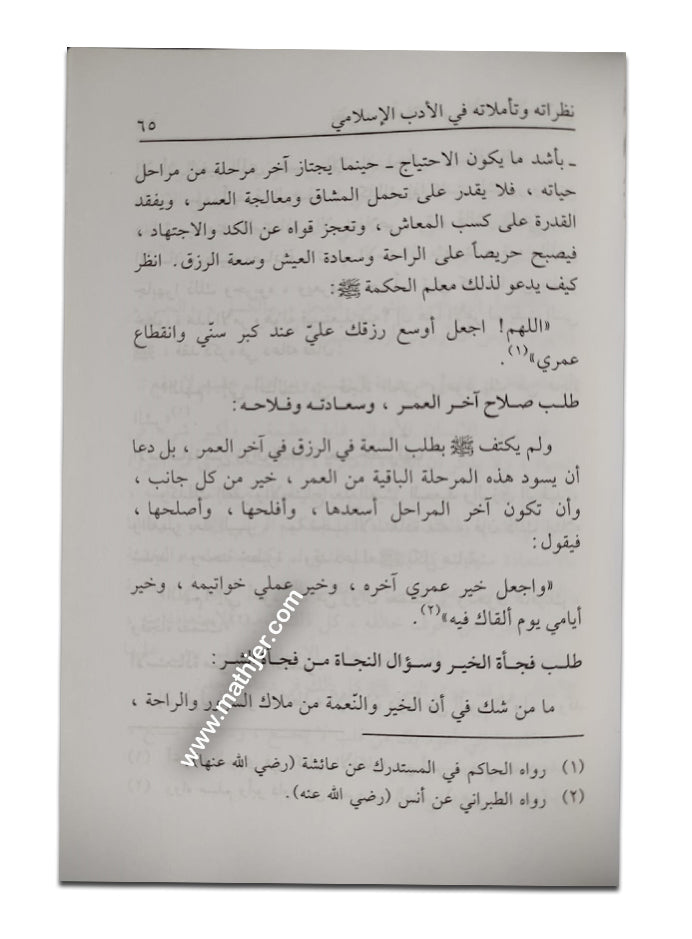 نظراته وتأملاته في الأدب الإسلامي ٦٥
ـ بأشد ما يكون الاحتياج ـ حينما يجتاز آخر مرحلة من مراحل
حياته ، فلا يقدر على تحمل المشاق ومعالجة العسر ، ويفقد
القدرة على كسب المعاش ، وتعجز قواه عن الكد والاجتهاد ،
فيصبح حريصاً على الراحة وسعادة العيش وسعة الرزق. انظر
كيف يدعو لذلك معلم الحكمة ﷺ:
«اللهم! اجعل أوسع رزقك عليّ عند كبر سنّي وانقطاع
عمري»(١).
طلب صلاح آخر العمر ، وسعادته وفلاحه:
ولم يكتف ﷺ بطلب السعة في الرزق في آخر العمر ، بل دعا
أن يسود هذه المرحلة الباقية من العمر ، خير من كل جانب ،
وأن تكون آخر المراحل أسعدها ، وأفلحها ، وأصلحها ،
فيقول:
«واجعل خير عمري آخره ، وخير عملي خواتيمه ، وخير
أيامي يوم ألقاك فيه»(٢).
طلب فجأة الخير وسؤال النجاة من فجأة الشر:
ما من شك في أن الخير والنّعمة من ملاك السرور والراحة ،
(١) رواه الحاكم في المستدرك عن عائشة (رضي الله عنها).
(٢) رواه الطبراني عن أنس (رضي الله عنه).
www.mathjer.com